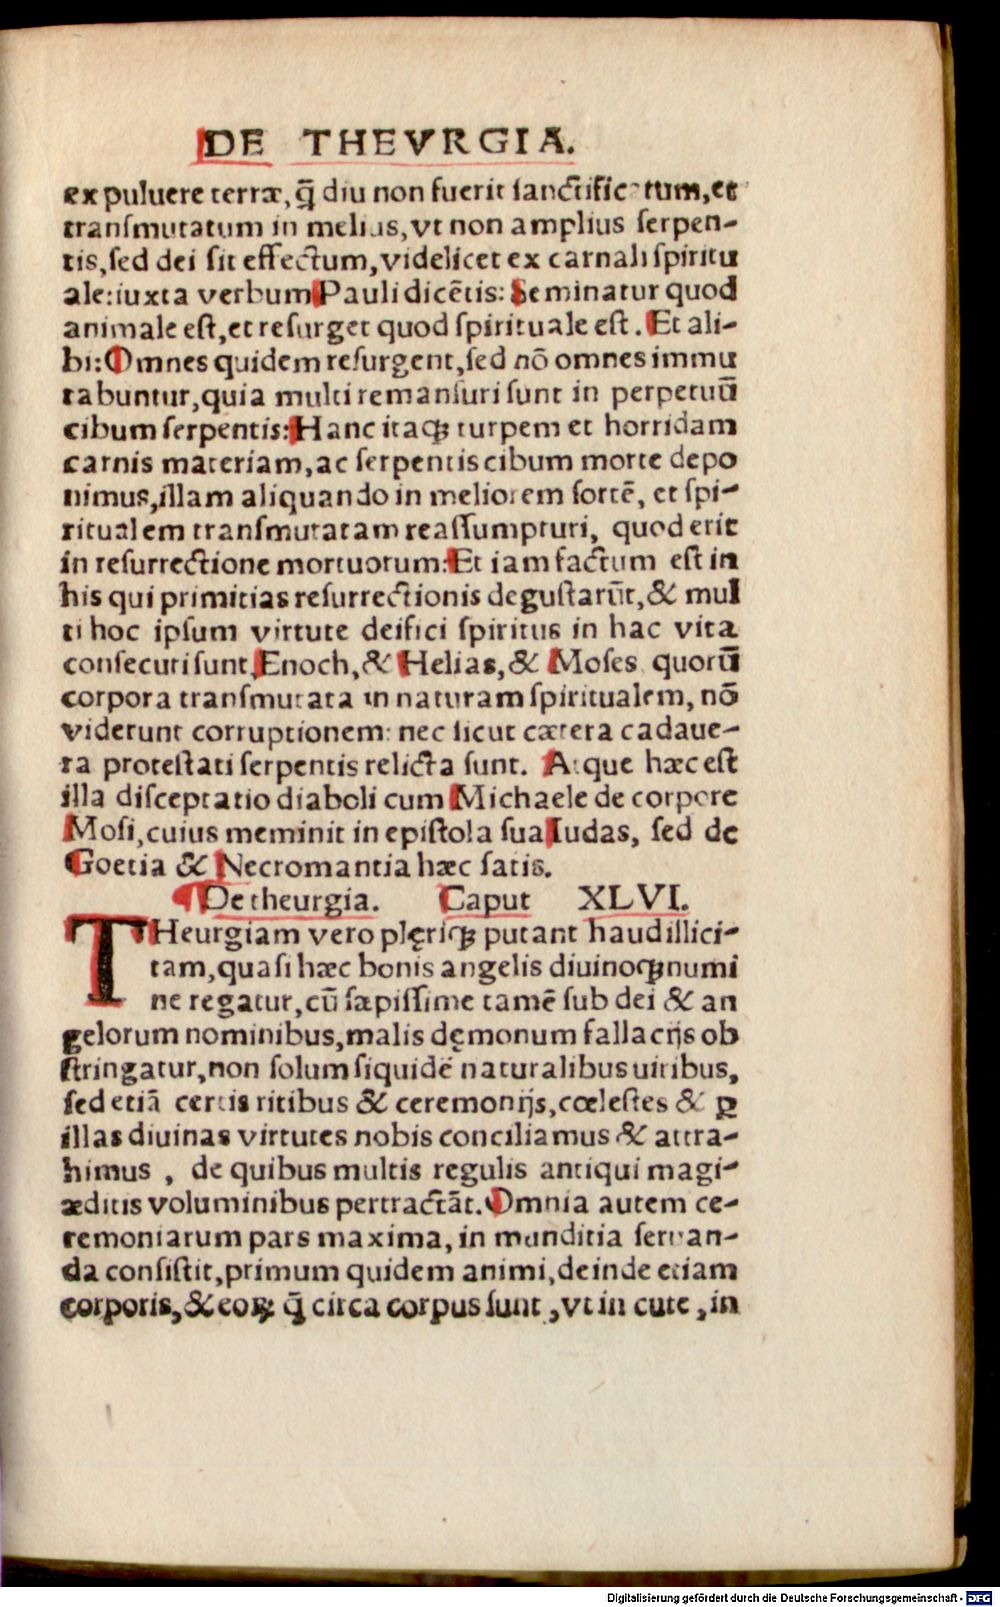 DE THEVRGIA.
ex puluere terræ, q̃ diu non fuerit ſanctific tum, et
tranſmutatum in melius, vt non amplius ſerpen-
tis, ſed dei ſit effectum, videlicet ex carnali ſpiritu
ale: iuxta verbum Pauli dicẽtis: Seminatur quod
animale eſt, et reſurget quod ſpirituale eſt. Et ali-
bi: Omnes quidem reſurgent, ſed nõ omnes immu
tabuntur, quia multi remanſuri ſunt in perpetuũ
cibum ſerpentis: Hanc itaqꝫ turpem et horridam
carnis materiam, ac ſerpentis cibum morte depo
nimus, illam aliquando in meliorem ſortẽ, et ſpi-
ritualem tranſmutatam reaſſumpturi, quod erit
in reſurrectione mortuorum: Et iam factum eſt in
his qui primitias reſurrectionis deguſtarũt, & mul
ti hoc ipſum virtute deifici ſpiritus in hac vita
conſecuti ſunt, Enoch, & Helias, & Moſes quorũ
corpora tranſmutata in naturam ſpiritualem, nõ
viderunt corruptionem: nec ſicut cætera cadaue-
ra proteſtati ſerpentis relicta ſunt. Atque hæc eſt
illa diſceptatio diaboli cum Michaele de corpore
Moſi, cuius meminit in epiſtola ſua Iudas, ſed de
Goetia & Necromantia hæc ſatis.
¶ De theurgia. Caput XLVI.
THeurgiam vero plęriqꝫ putant haud illici-
tam, quaſi hæc bonis angelis diuinoqꝫ numi
ne regatur, cũ ſæpiſſime tamẽ ſub dei & an
gelorum nominibus, malis dęmonum fallacijs ob
ſtringatur, non ſolum ſiquidẽ naturalibus uiribus,
ſed etiã certis ritibus & ceremonijs, cœleſtes & ꝑ
illas diuinas virtutes nobis conciliamus & attra-
himus, de quibus multis regulis antiqui magi-
æditis voluminibus pertractãt. Omnia autem ce-
remoniarum pars maxima, in munditia ſeruan-
da conſiſtit, primum quidem animi, deinde etiam
corporis, & eoꝝ q̃ circa corpus ſunt, vt in cute, in
Digitalisierung gefördert durch die Deutsche Forschungsgemeinschaft - DFG